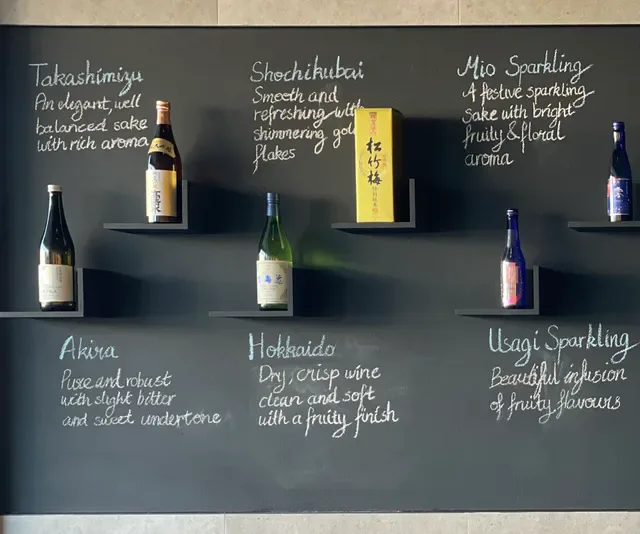 Takashimizu
An elegant, well
balanced sake
with rich aroma
Shochikubai
Smooth and
refreshing with
shimmering gold
flakes
Mio Sparkling
A festive sparkling
Sake with bright
fruity & floral
aroma
松竹梅
Akira
Pure and robust
with slight bitter
and sweet undertone
Hokkaido
Dry, crisp wine
clean and soft
with a fruity finish
Usagi Sparkling
Beautiful infusion
of fruity flavours